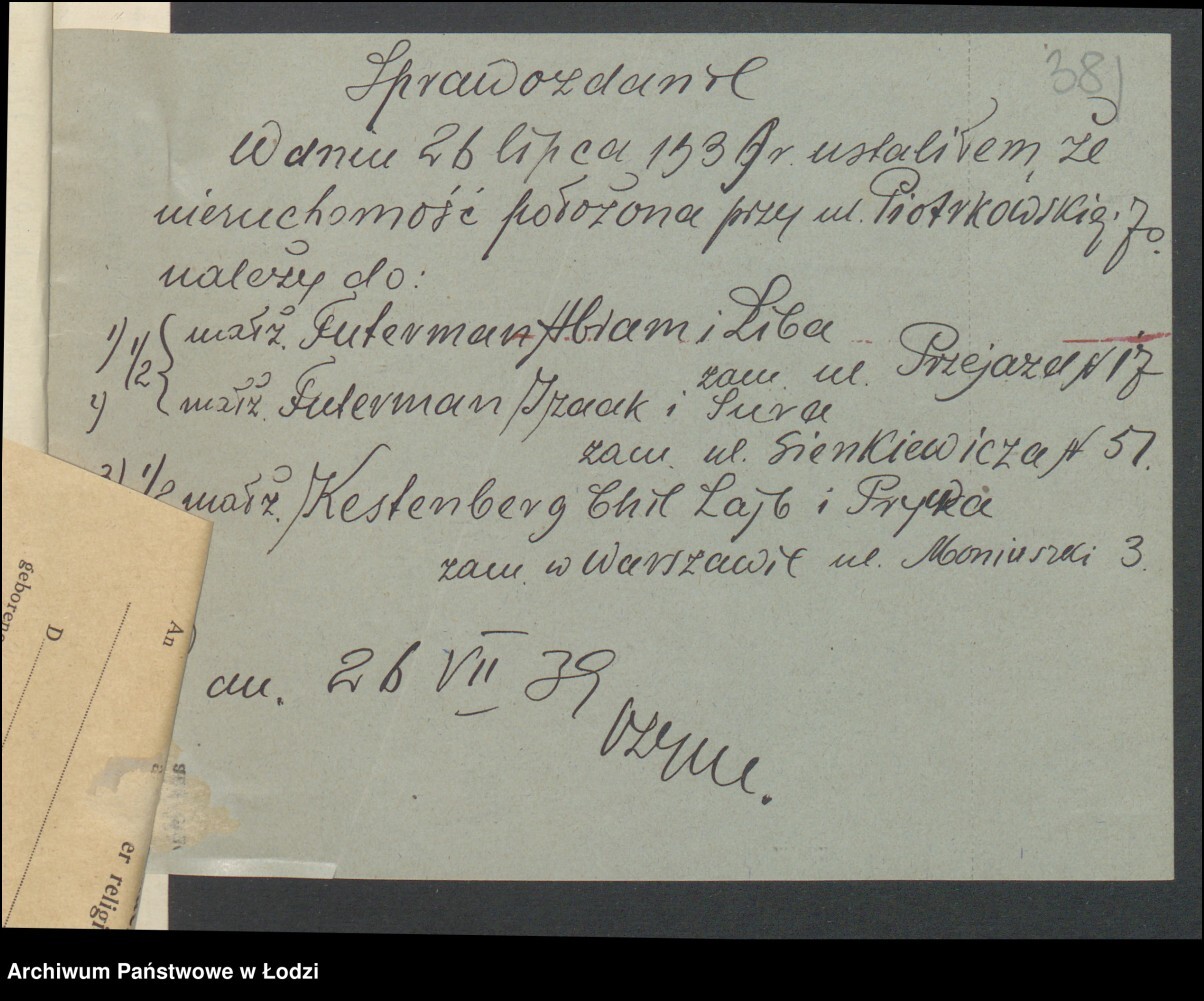 38
Sprawozdanie
W dniu 26 lipca 1939 r. ustaliłem, że
nieruchomość położona przy ul. Piotrkowskiej 70.
należy do:
1) 1/2 { małż. Futerman Abram i Liba
zam. ul. Przejazd N 17
2) małż. Futerman Izaak i Sura
zam. ul. Sienkiewicza N 51.
3) 1/2 małż. Kestenberg Chil Lajb i Frywa
zam. w Warszawie ul. Moniuszki 3.
dn. 26 VII 39
geborene
D
An
er religi
Archiwum Państwowe w Łodzi